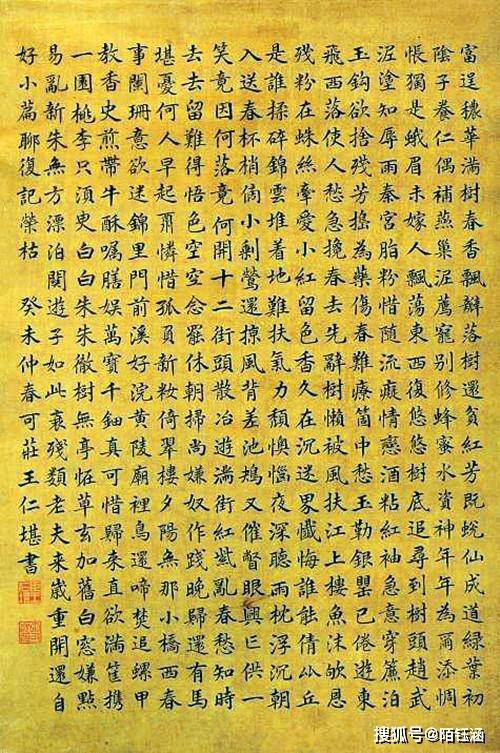 富逞穠華滿樹春香飄瓣落還貧紅芳既蛻仙成道綠葉初
陰子養仁偶補燕巢泥薦寵別修蜂蜜水資神年年為爾添惆
悵獨是蛾眉未嫁人飄蕩東西復悠悠樹底追尋到樹頭趙武
泥塗知辱雨秦宮脂粉惜隨流癡情戀酒粘紅袖急意穿簾泊
玉鈎欲捨殘芳搗為藥傷春難療箇中愁玉勒銀罌已倦遊東
飛西落使人愁急攙春去先辭樹懶被風扶江上樓魚沫欨恩
殘粉在蛛絲牽愛小紅留色香久在沉迷界懺悔誰能倩丘
是誰揉碎錦雲堆着地難扶氣力頹懊惱夜深聽雨枕浮沉朝
入送春杯梢小剩鶯還掠風背差池鳩又催瞥眼興亡供一
笑竟因何落竟何開十二街頭散冶遊滿街紅紫亂春愁知時
去去留難得悟色空空念罷休朝掃尚嫌奴作踐晚歸還有馬
堪憂何人早起肅憐惜孤負新粧倚翠樓夕陽無那小橋西春
事闌珊意欲迷錦里門前溪好浣黃陵廟裡鳥還啼焚追螺甲
教香史煎帶牛酥囑膳娛萬寶千鈿真可惜歸來直欲滿筐攜
一園桃李只須臾白白朱朱徹樹無亭怪草玄加舊白窓嫌點
易亂新朱無方漂泊關遊子如此衰殘類老夫來歲重開還自
好小篇聊復記榮枯 癸未仲春可莊王仁堪書
搜狐号@陌钰涵